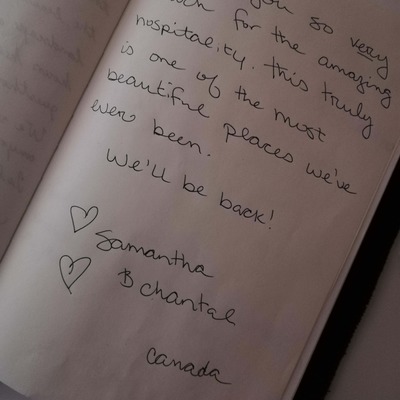 you so very
for the amazing
hospitality. This truly
is one of the most
beautiful places we've
ever been.
We'll be back!
♡ Samantha
♡ & Chantal
Canada